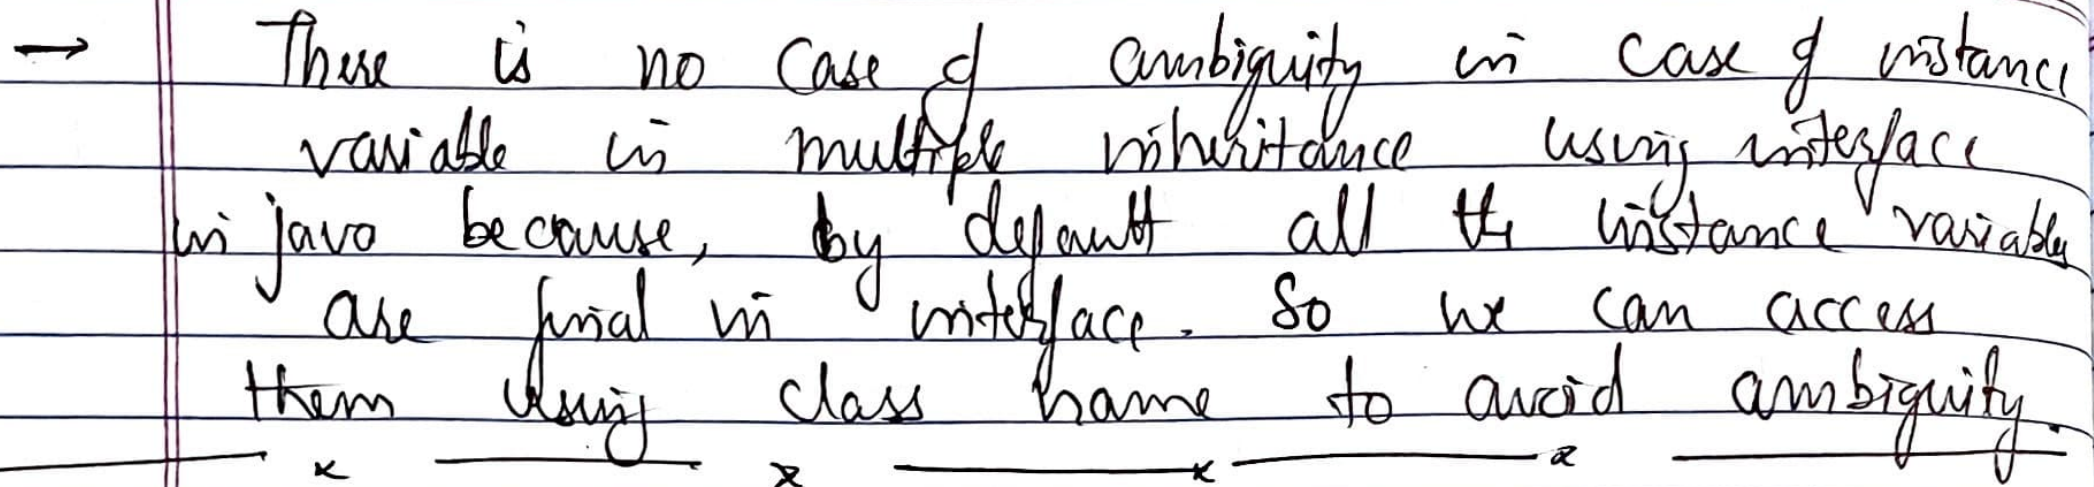 → There is no case of ambiguity in case of instance
variable in multiple inheritance using interface
in java because, by default all the instance variables
are final in interface. So we can access
them using class name to avoid ambiguity.
x x x x